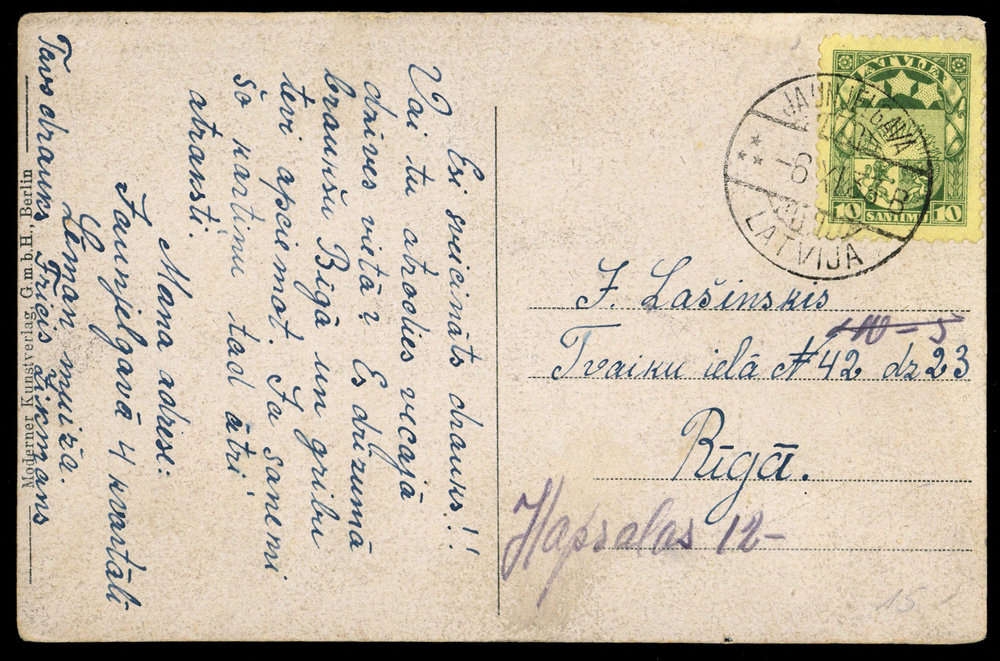 Esi sveicināts draugs!!
Vai tu atrodies vecajā
dzīves vietā? Es drīzumā
braukšu Rīgā un gribu
tevi apciemot. Ja saņemi
šo kartiņu tad ātri
atraksti.
Mana adrese:
Jaunjelgavā 4 kvartāli
Lēman muiža.
Tavs draugs Fricis
Moderner Kunstverlag, G.m.b.H., Berlin
LATVIJA
10 SANTIMU 10
JAUNJELGAVA
LATVIJA
J. Lašinskis
Tvaiku ielā № 42 dz 23
Rīgā.
Hapsalas 12-
15